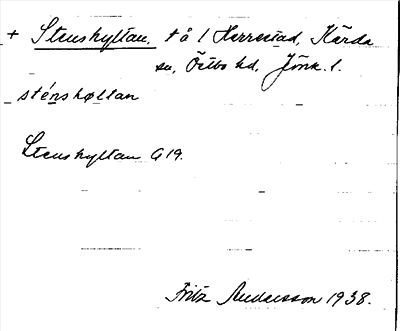 + Stenshyltan, tå 1 Herrestad, Kärda
sn, Östbo hd, Jönk. l.
sténshøltan
Stenshyltan G19.
Fritz Andersson 1938.